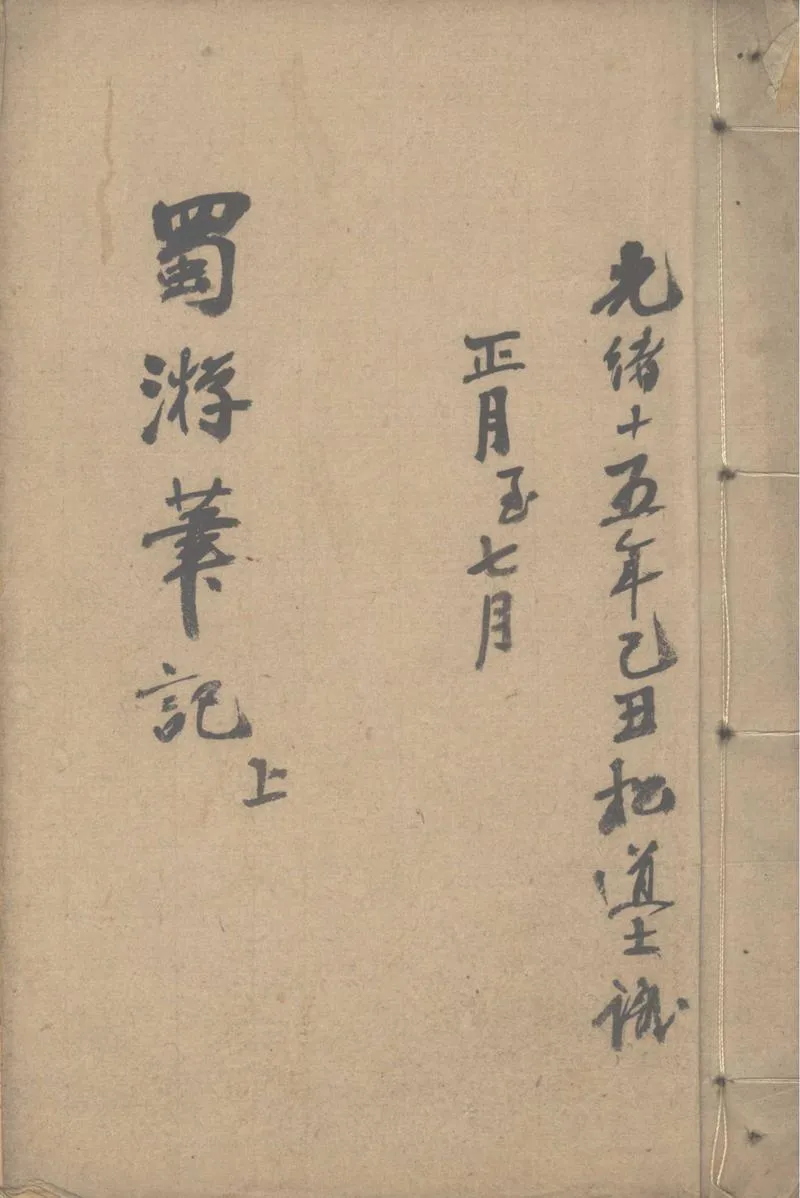 光緒十五年己丑松道士識
正月至七月
蜀游筆記
上